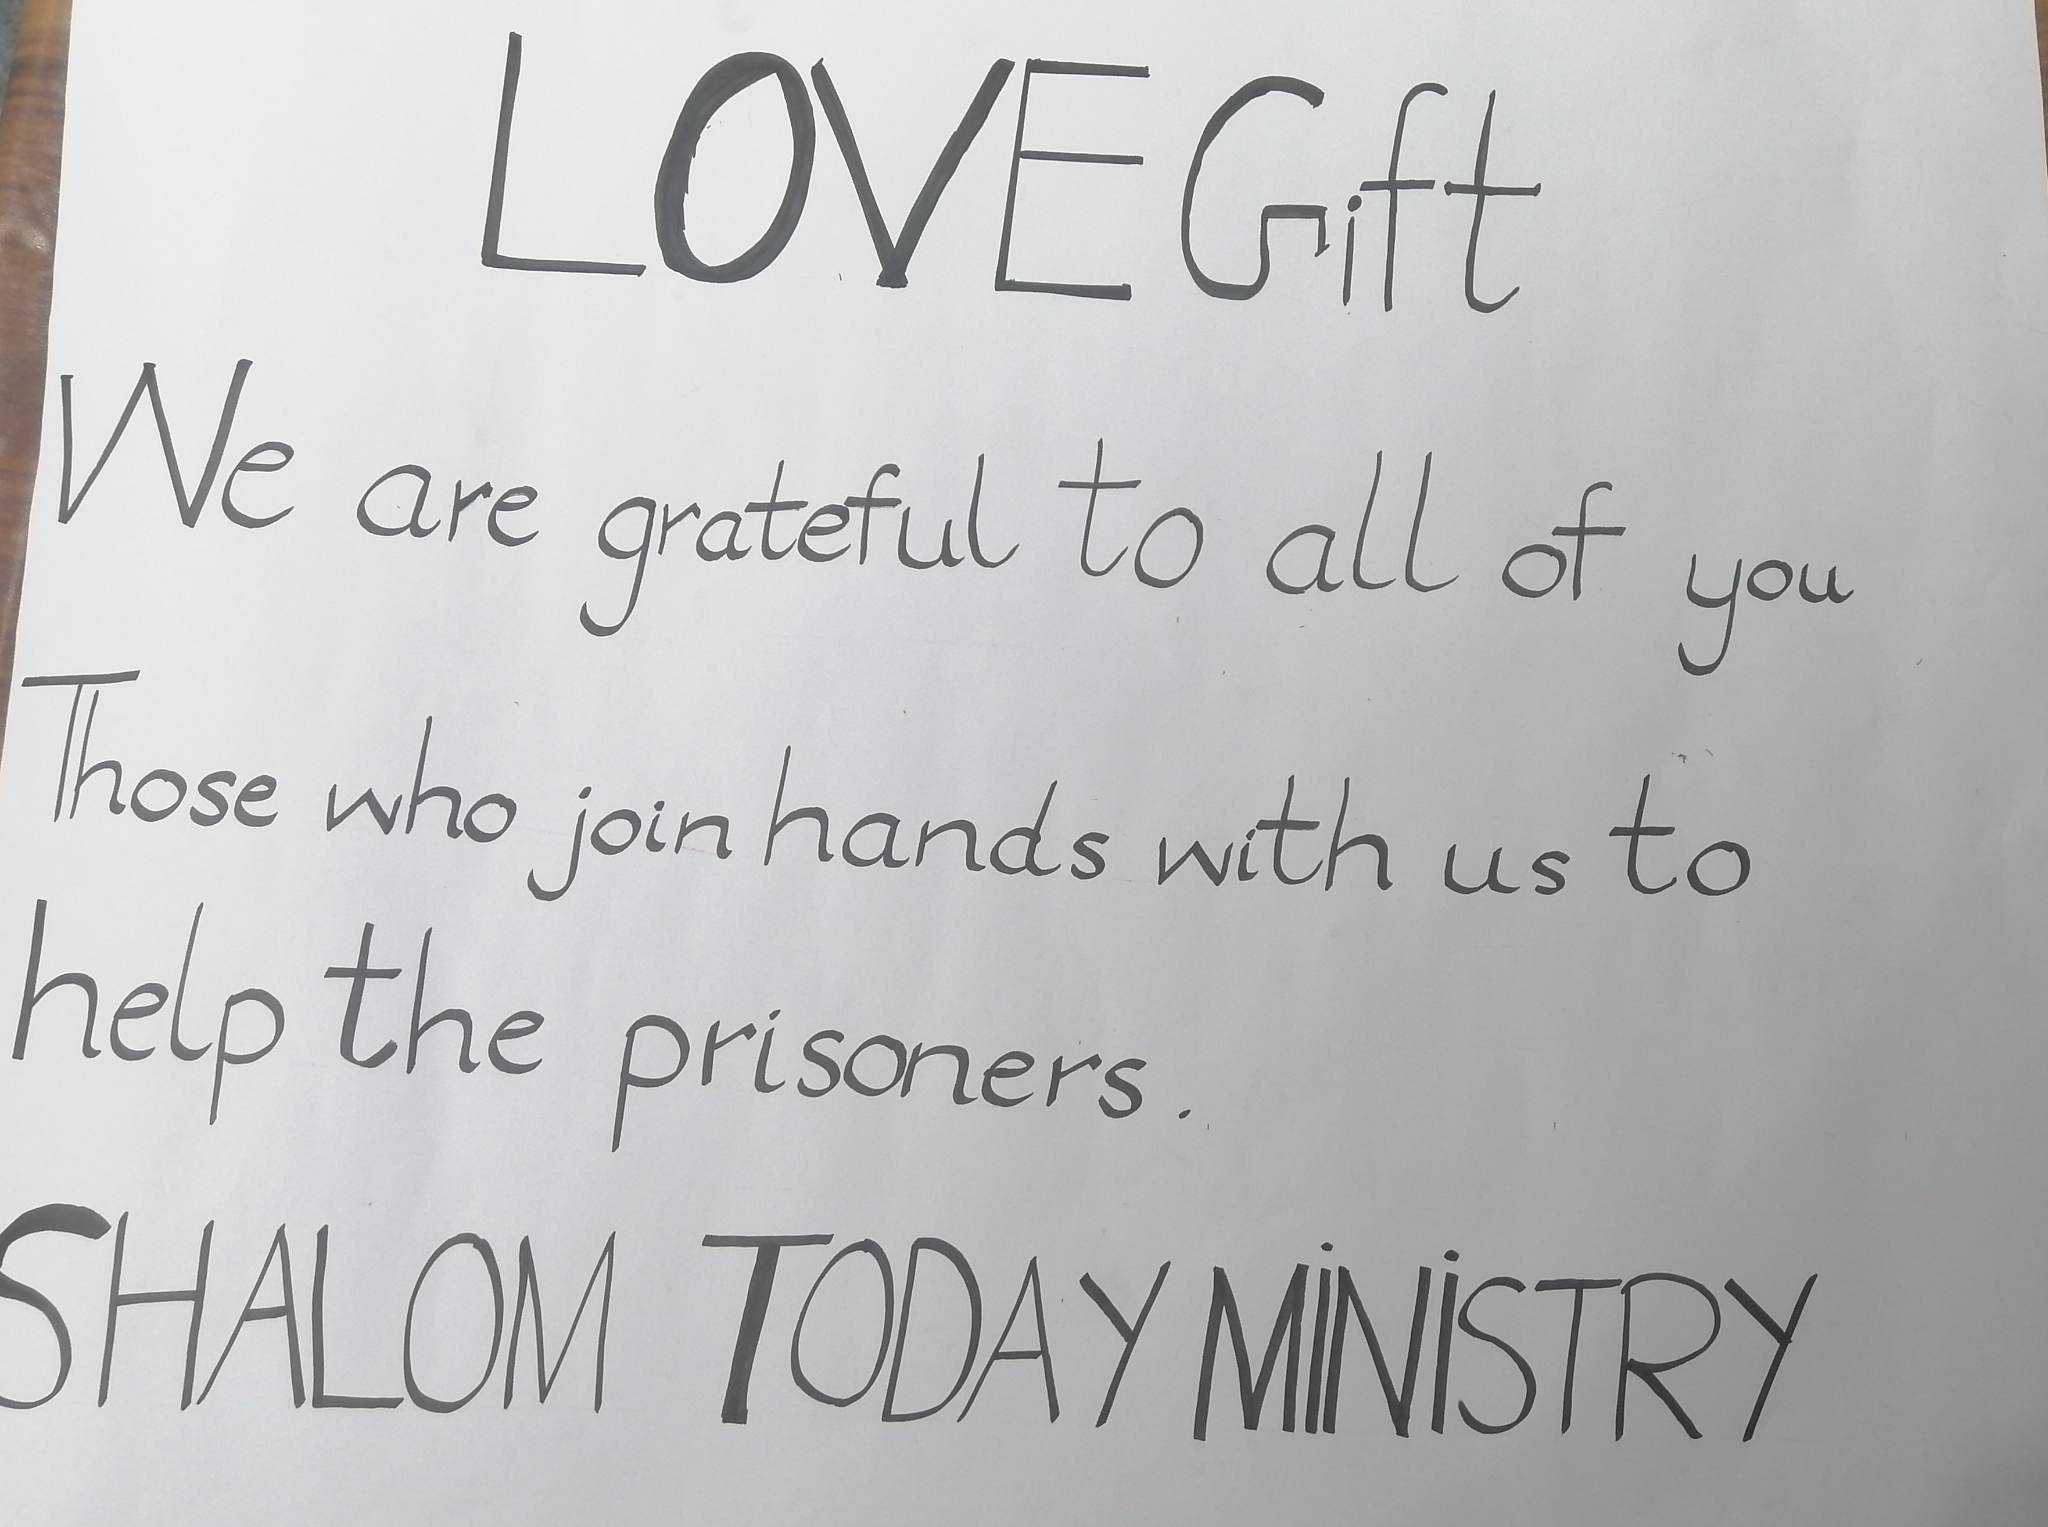 LOVE Gift
We are grateful to all of you
Those who join hands with us to
help the prisoners.
SHALOM TODAY MiNiSTRY